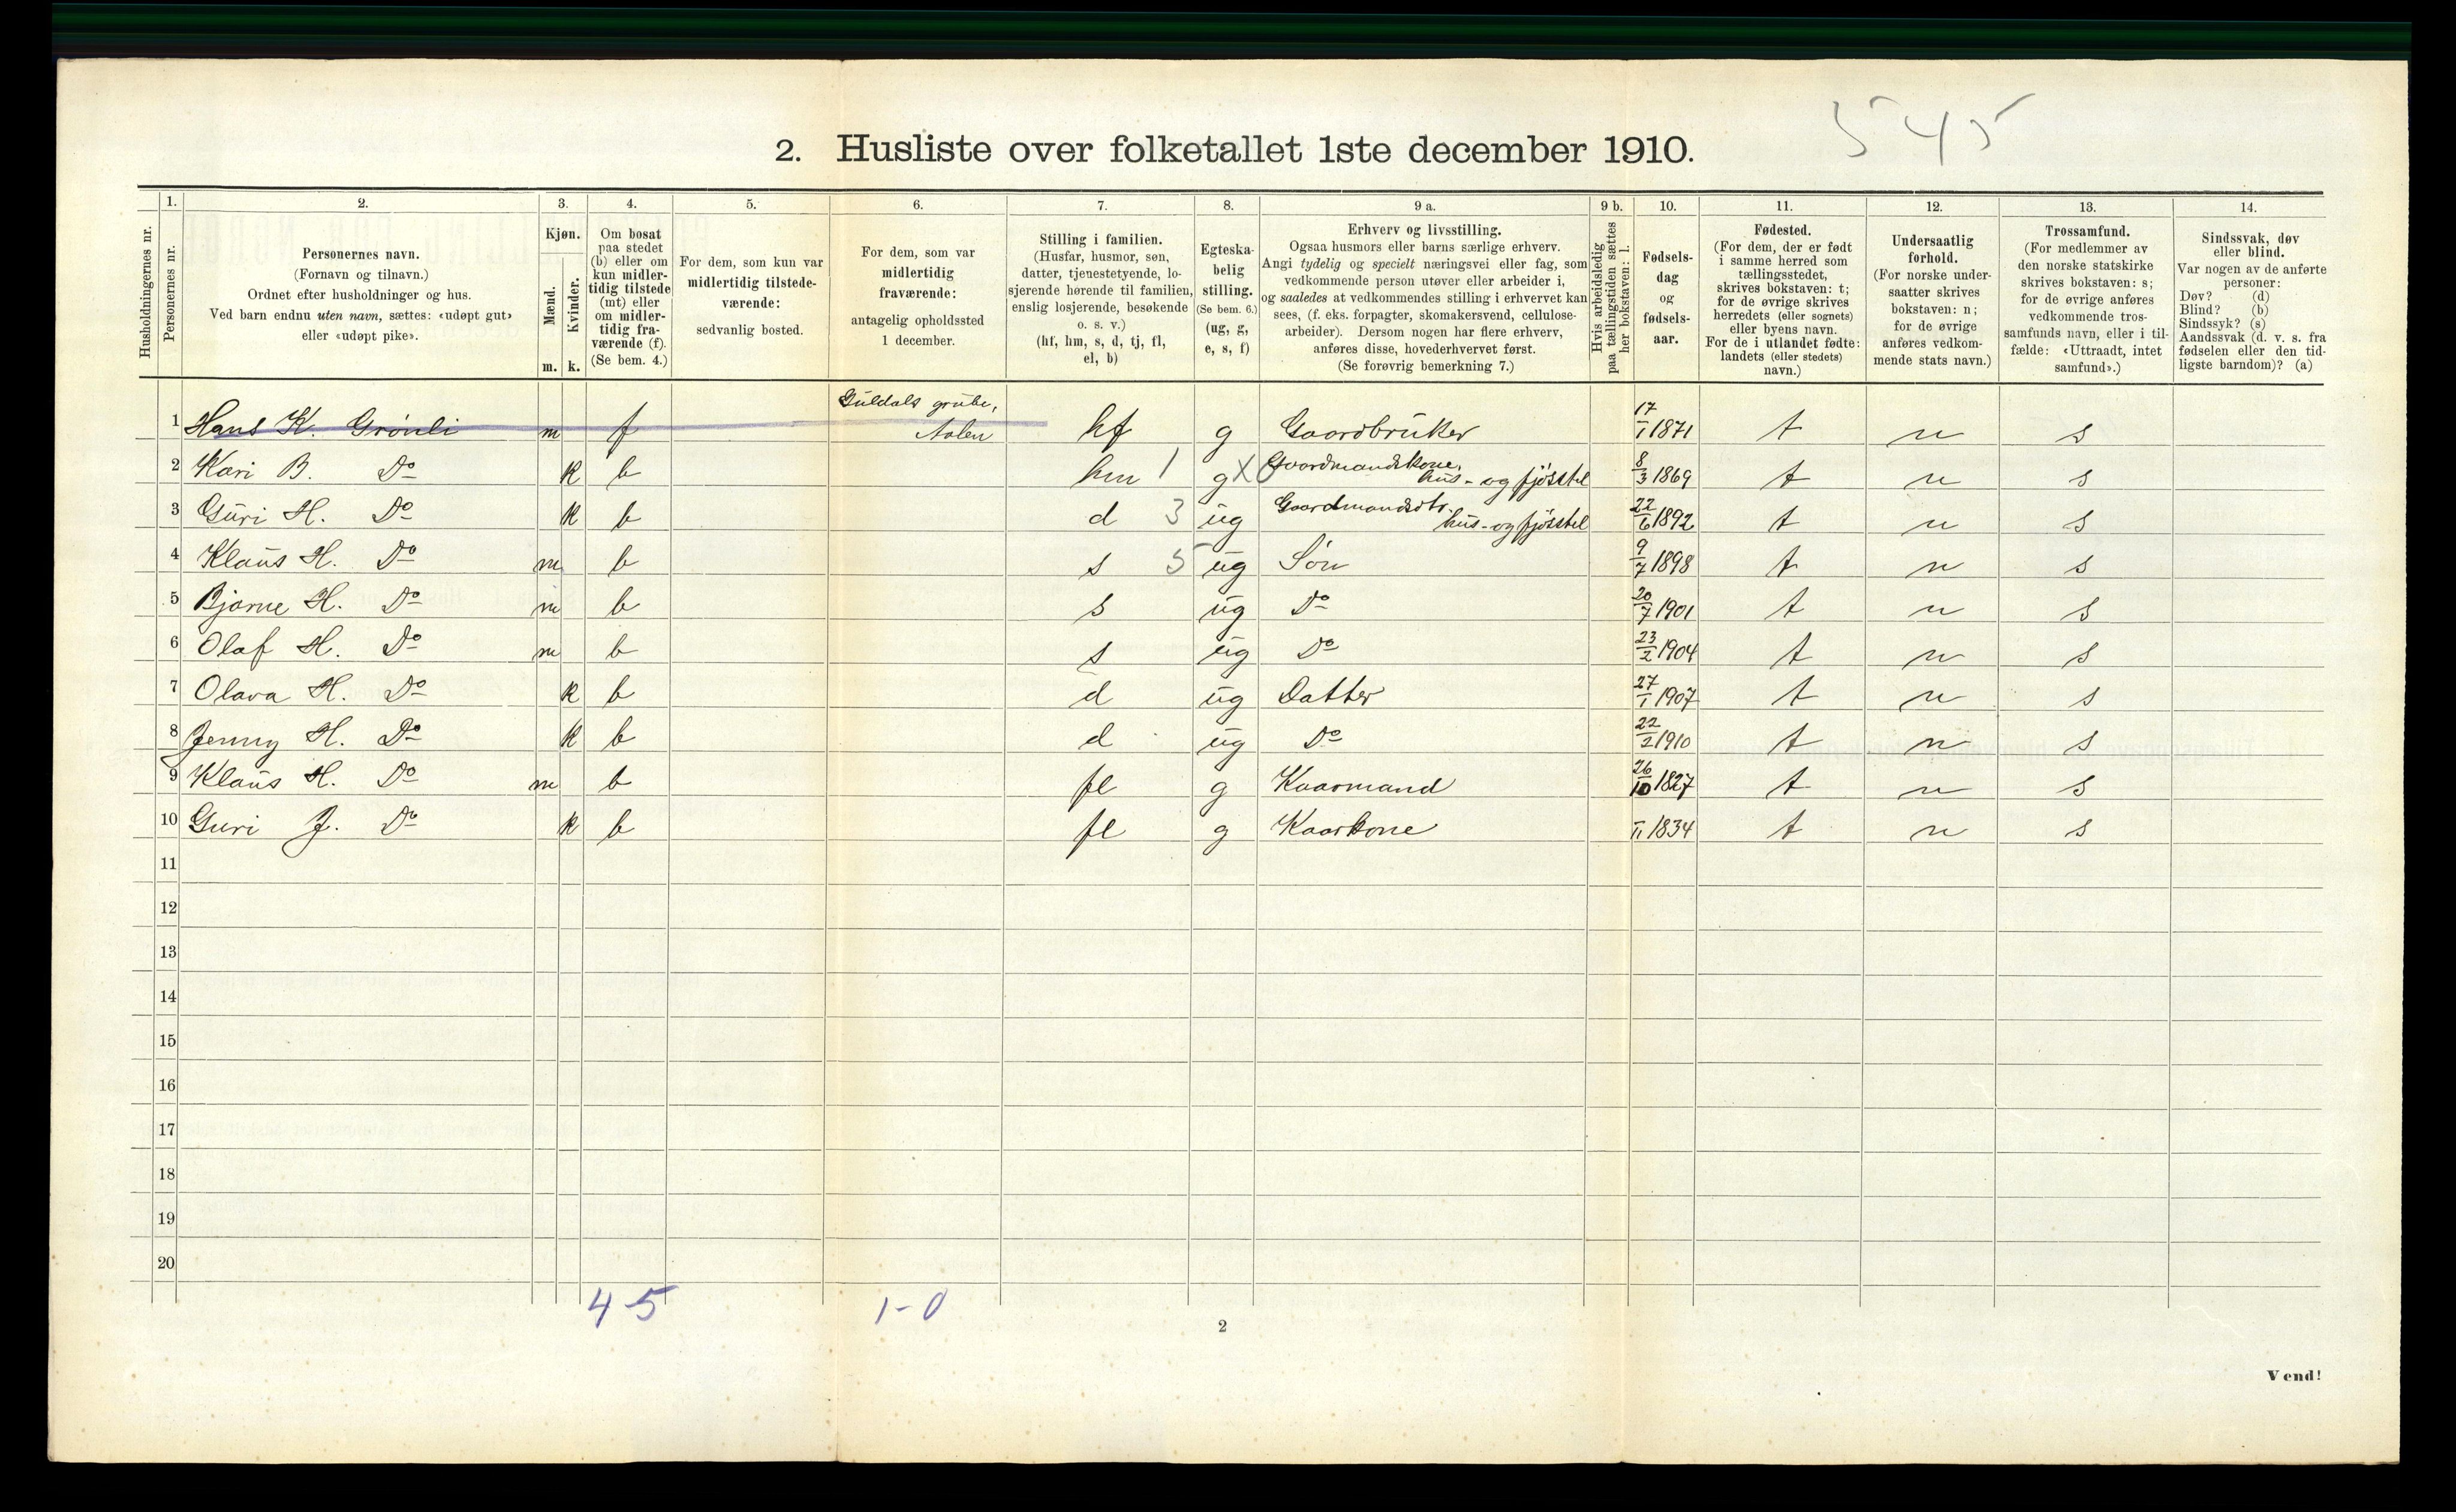 545
2. Husliste over folketallet 1ste december 1910.
Husholdningernes nr.
1.
Personernes nr.
2.
Personernes navn.
(Fornavn og tilnavn.)
Ordnet efter husholdninger og hus.
Ved barn endnu uten navn, sættes: «udøpt gut»
eller «udøpt pike».
3.
Kjøn.
Mænd.
Kvinder.
m. k.
4.
Om bosat
paa stedet
(b) eller om
kun midler-
tidig tilstede
(mt) eller
om midler-
tidig fra-
værende (f).
(Se bem. 4.)
5.
For dem, som kun var
midlertidig tilstede-
værende:
sedvanlig bosted.
6.
For dem, som var
midlertidig
fraværende:
antagelig opholdssted
1 december.
7.
Stilling i familien.
(Husfar, husmor, søn,
datter, tjenestetyende, lo-
sjerende hørende til familien,
enslig losjerende, besøkende
o. s. v.)
(hf, hm, s, d, tj, fl,
el, b)
8.
Egteska-
belig
stilling.
(Se bem. 6.)
(ug, g,
e, s, f)
9 a.
Erhverv og livsstilling.
Ogsaa husmors eller barns særlige erhverv.
Angi tydelig og specielt næringsvei eller fag, som
vedkommende person utøver eller arbeider i,
og saaledes at vedkommendes stilling i erhvervet kan
sees, (f. eks. forpagter, skomakersvend, cellulose-
arbeider). Dersom nogen har flere erhverv,
anføres disse, hovederhvervet først.
(Se forøvrig bemerkning 7.)
9 b.
Hvis arbeidsledig
paa tællingstiden sættes
her bokstaven: l.
10.
Fødsels-
dag
og
fødsels-
aar.
11.
Fødested.
(For dem, der er født
i samme herred som
tællingsstedet,
skrives bokstaven: t;
for de øvrige skrives
herredets (eller sognets)
eller byens navn.
For de i utlandet fødte:
landets (eller stedets)
navn.)
12.
Undersaatlig
forhold.
(For norske under-
saatter skrives
bokstaven: n;
for de øvrige
anføres vedkom-
mende stats navn.)
13.
Trossamfund.
(For medlemmer av
den norske statskirke
skrives bokstaven: s;
for de øvrige anføres
vedkommende tros-
samfunds navn, eller i til-
fælde: «Uttraadt, intet
samfund».)
14.
Sindssvak, døv
eller blind.
Var nogen av de anførte
personer:
Døv? (d)
Blind? (b)
Sindssyk? (s)
Aandssvak (d. v. s. fra
fødselen eller den tid-
ligste barndom)? (a)
1 Hans K. Grönli m f Guldals grube, Aalen hf g Gaardbruker 17/1 1871 t n s
2 Kari B. Do k b hm 1 g X Gaardmandskone, hus- og fjösstel 8/3 1869 t n s
3 Guri H. Do k b d 3 ug Gaardmandsdtr. hus- og fjösstel 22/6 1892 t n s
4 Klaus H. Do m b s 5 ug Sön 9/7 1898 t n s
5 Bjarne H. Do m b s ug Do 20/7 1901 t n s
6 Olaf H. Do m b s ug Do 23/2 1904 t n s
7 Olava H. Do k b d ug Datter 27/1 1907 t n s
8 Jenny H. Do k b d ug Do 22/2 1910 t n s
9 Klaus H. Do m b fl g Kaarmand 26/10 1827 t n s
10 Guri J. Do k b fl g Kaarkone 1834 t n s
11
12
13
14
15
16
17
18
19
20
4-5
1-0
2
Vend!